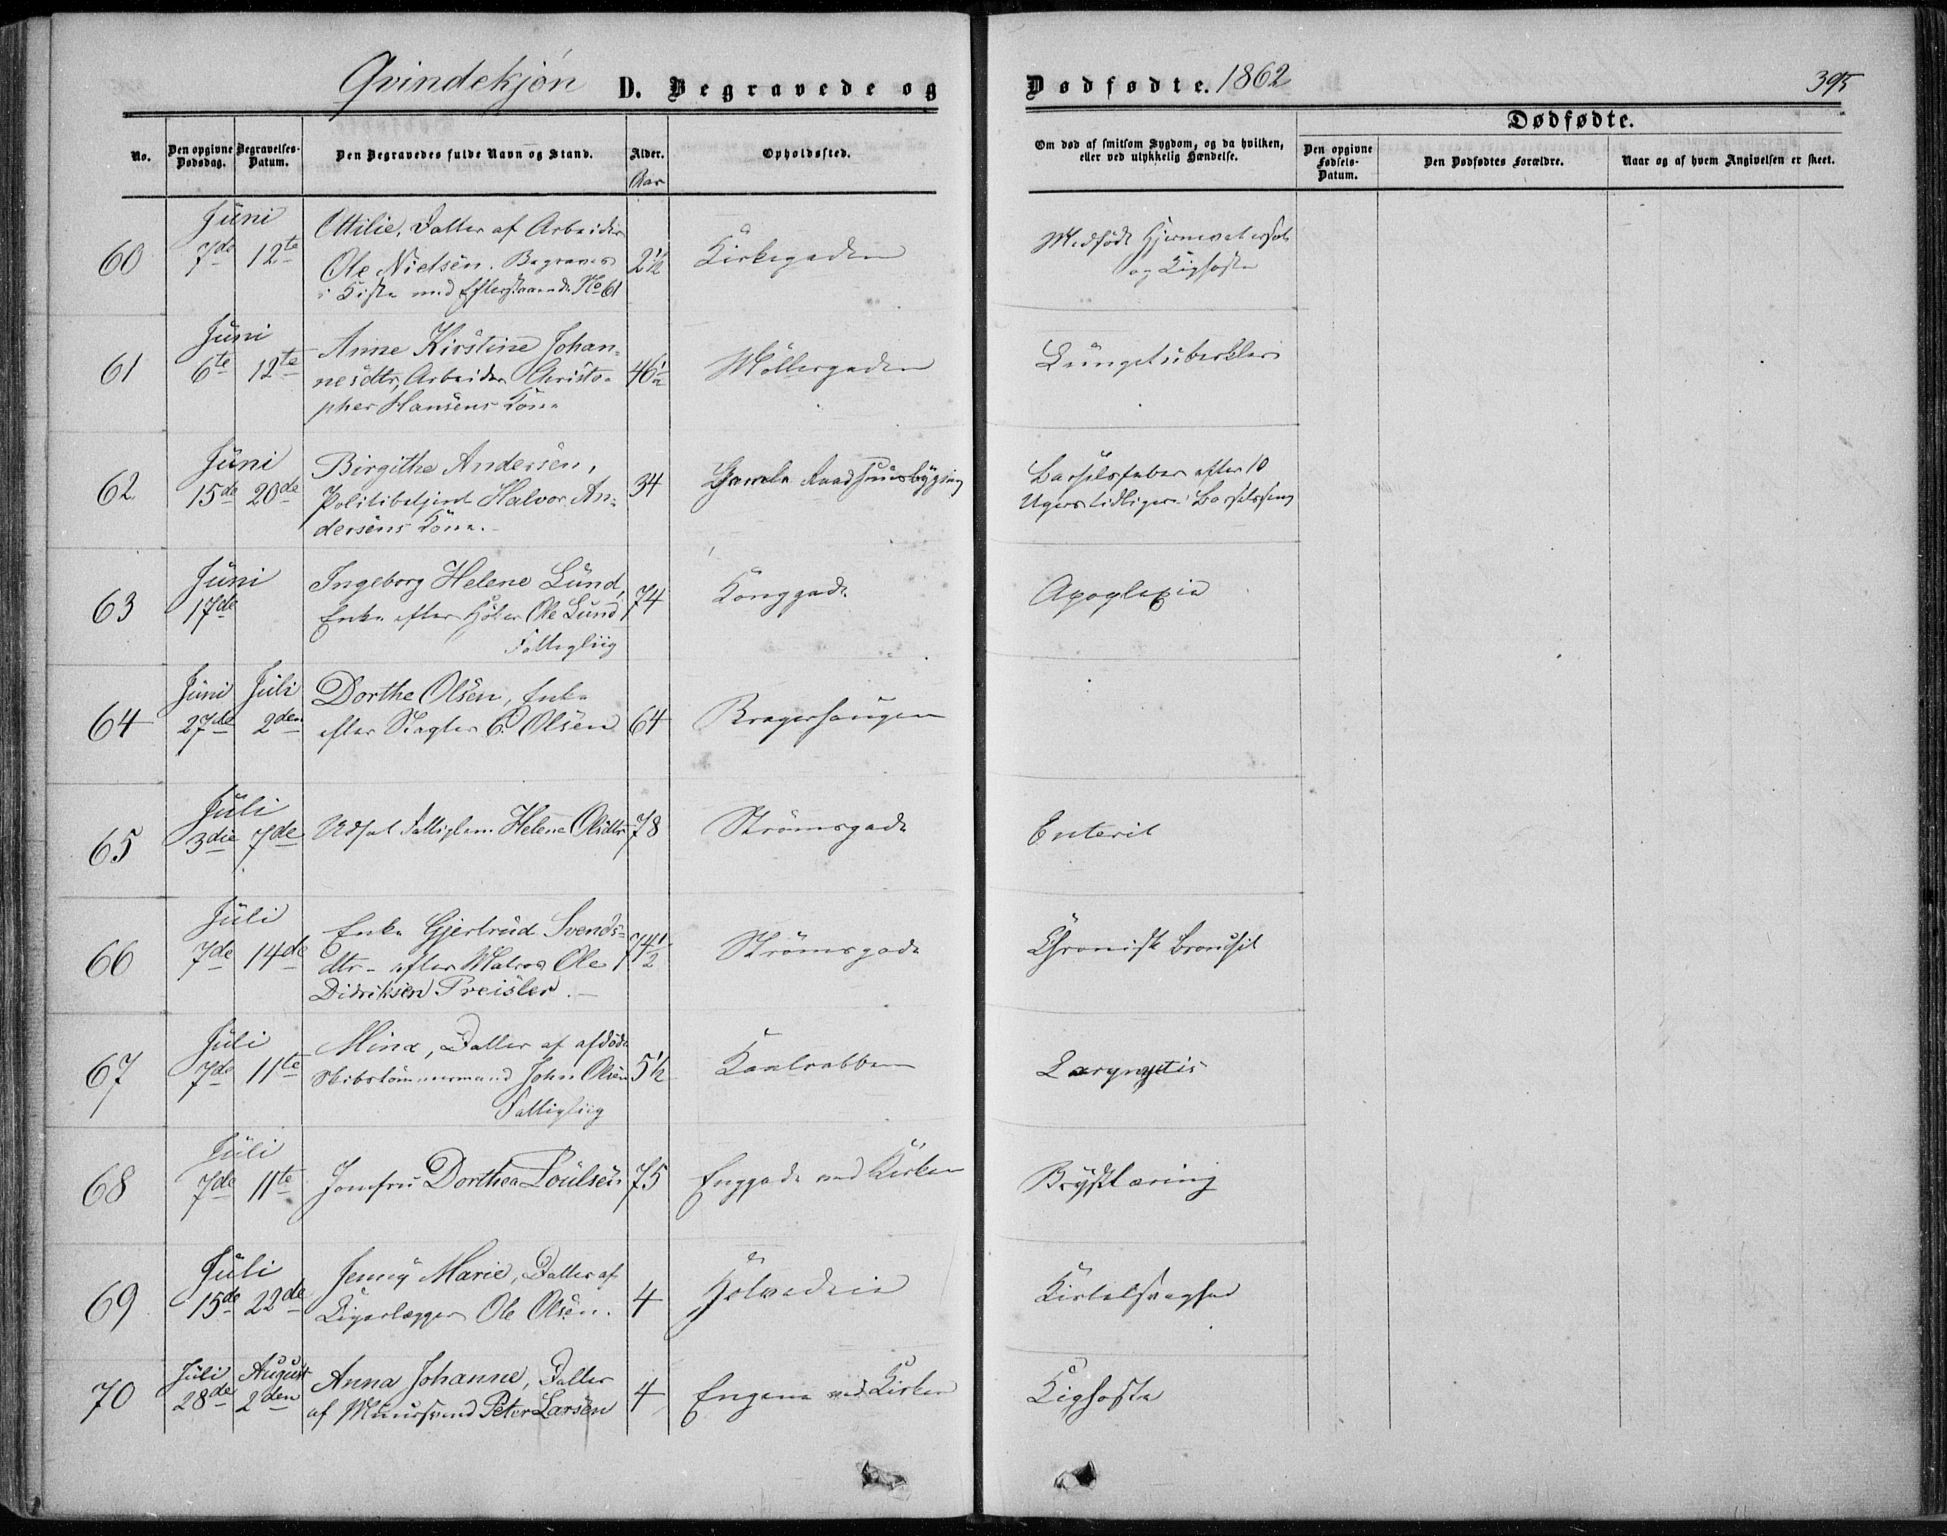 Qvindekjøn D. Begravede og Dødfødte. 1862 395
No. Den opgivne Dødsdag. Begravelses-Datum. Den Begravedes fulde Navn og Stand. Alder. Opholdssted. Om død af smitsom Sygdom, og da hvilken, eller ved ulykkelig Hændelse. Dødfødte.
Den opgivne Fødsels-Datum. Den Dødfødtes Forældre. Naar og af hvem Angivelsen er skeet.
Aar
Juni Ottilie, Datter af Arbeider Medfødt Hjernevatersot
60 7de 12te Ole Nielsen. Begraves 2½ Kirkegaden og Kighoste
i Kiste med Efterstaaende No 61
Juni Anne Kirstine Johan-
61 6te 12te nesdtr, Arbeider Christo- 46½ Møllergaden Lungetuberkler
pher Hansens Kone
Juni Birgithe Andersen, Barselsfeber efter 10
62 15de 20de Politibetjent Halvor An- 34 Gamle Raadhuusbygning Ugers tidligere Barselseng
dersens Kone.
Juni Ingeborg Helene Lund,
63 17de Enke efter Høker Ole Lund 74 Konggade Apoplexie
Fattigliig
Juni Juli Dorthe Olsen, Enke
64 27de 2den efter Slagter C. Olsen 64 Bragerhaugen
Juli
65 3die 7de Udsat Fattiglem Helene Olsdtr 78 Strømsgade Enterit
Juli Enke Gjertrud Svends-
66 7de 14de dtr- efter Matros Ole 74½ Strømsgade Chronisk Bronchit
Didriksen Preisler.
Juli Mina, Datter af afdøde
67 7de 11te Skibstømmermand John Olsen 5½ Kaalrabben Laryngitis
Fattigliig
Juli
68 7de 11te Jomfru Dorthea Poulsen 75 Enggade ved Kirken Brysttæring
Juli Jenny Marie, Datter af
69 15de 22de Ligerlægger Ole Olsen. 4 Kirtelsvaghed
Juli August Anna Johanne, Datter
70 28de 2den af Muursvend Peter Larsen 4 Engene ved Kirken Kighoste